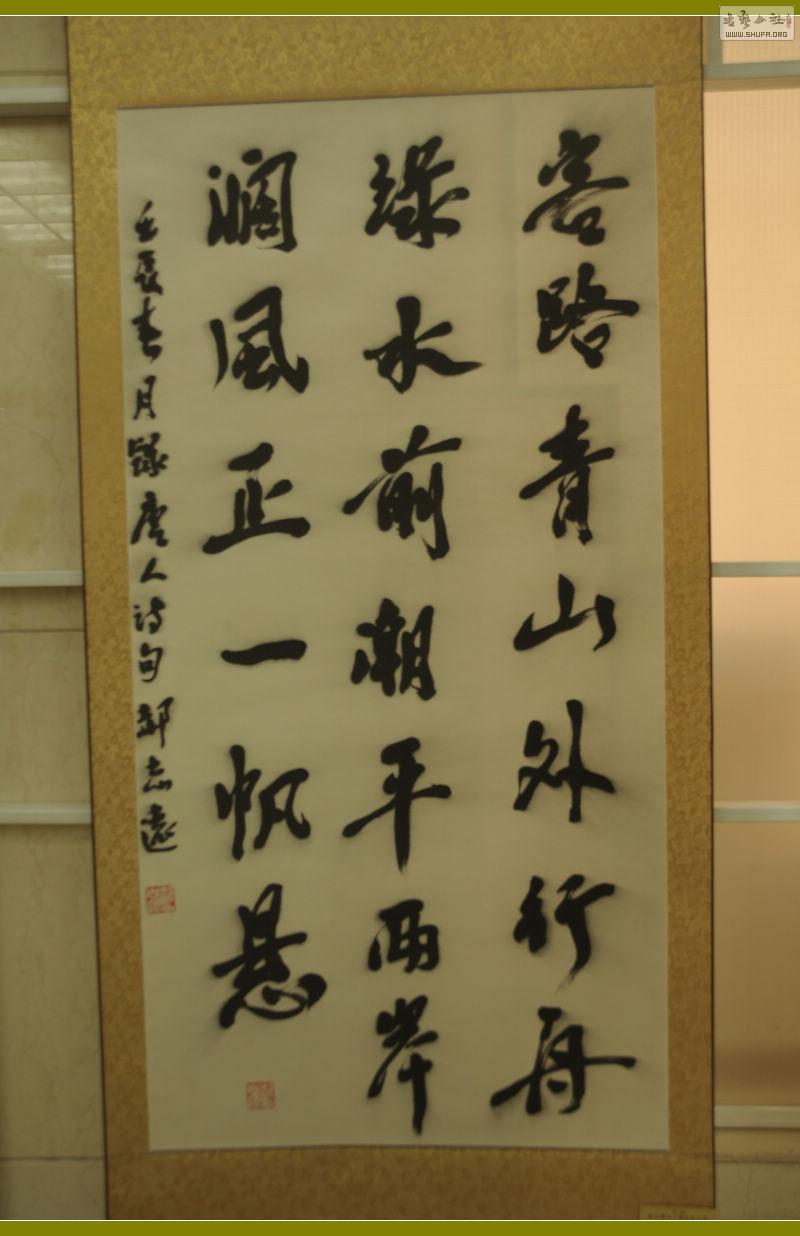 客路青山外行舟
绿水前潮平两岸
阔风正一帆悬
壬辰春月录唐人诗句郝志远
WWW.SHUFA.ORG